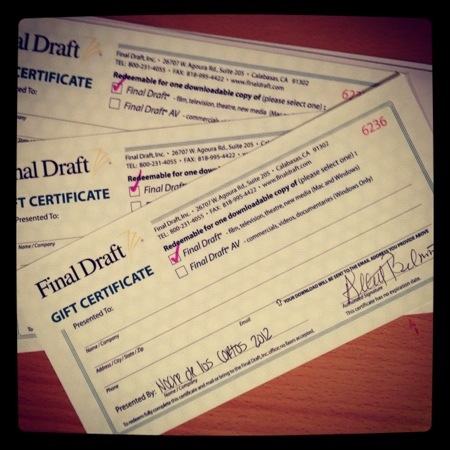 al Draft
CERTIFICATE
Final Draft, Inc. • 26707 W. Agoura Rd., Suite 205 • Calabasas, CA 91302
TEL: 800-231-4055 • FAX: 818-995-4422 • www.finaldraft.com
Redeemable for one downloadable copy of (please select one) :
Final Draft® - film, television, theatre, new media (Mac
Final Draft® AV - commercials,
623
nal Draft
FT CERTIFICATE
Presented To:
Name / Company
Final Draft, Inc. • 26707 W. Agoura Rd., Suite 205
TEL: 800-231-4055 • FAX: 818-995-4422
Redeemable for one
Final Draft
Final Draft
GIFT CERTIFICATE
Final Draft, Inc. • 26707 W. Agoura Rd., Suite 205 • Calabasas, CA 91302
TEL: 800-231-4055 • FAX: 818-995-4422 • www.finaldraft.com
Redeemable for one downloadable copy of (please select one) :
Final Draft® - film, television, theatre, new media (Mac and Windows)
Final Draft® AV - commercials, videos, documentaries (Windows Only)
6236
Presented To:
Name / Company
Email
YOUR DOWNLOAD WILL BE SENT TO THE EMAIL ADDRESS YOU PROVIDE ABOVE
Address / City / State / Zip
Phone
Authorized Signature
This certificate has no expiration date.
Presented By: Noche de los Cortos 2012
Name / Company
To redeem fully complete this certificate and mail or bring to the Final Draft, Inc. office; no faxes accepted.